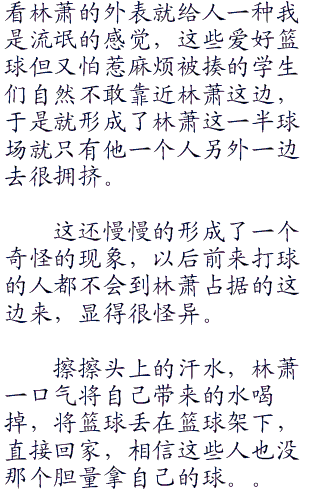 看林萧的外表就给人一种我
是流氓的感觉，这些爱好篮
球但又怕惹麻烦被揍的学生
们自然不敢靠近林萧这边，
于是就形成了林萧这一半球
场就只有他一个人另外一边
去很拥挤。
这还慢慢的形成了一个
奇怪的现象，以后前来打球
的人都不会到林萧占据的这
边来，显得很怪异。
擦擦头上的汗水，林萧
一口气将自己带来的水喝
掉，将篮球丢在篮球架下，
直接回家，相信这些人也没
那个胆量拿自己的球。。